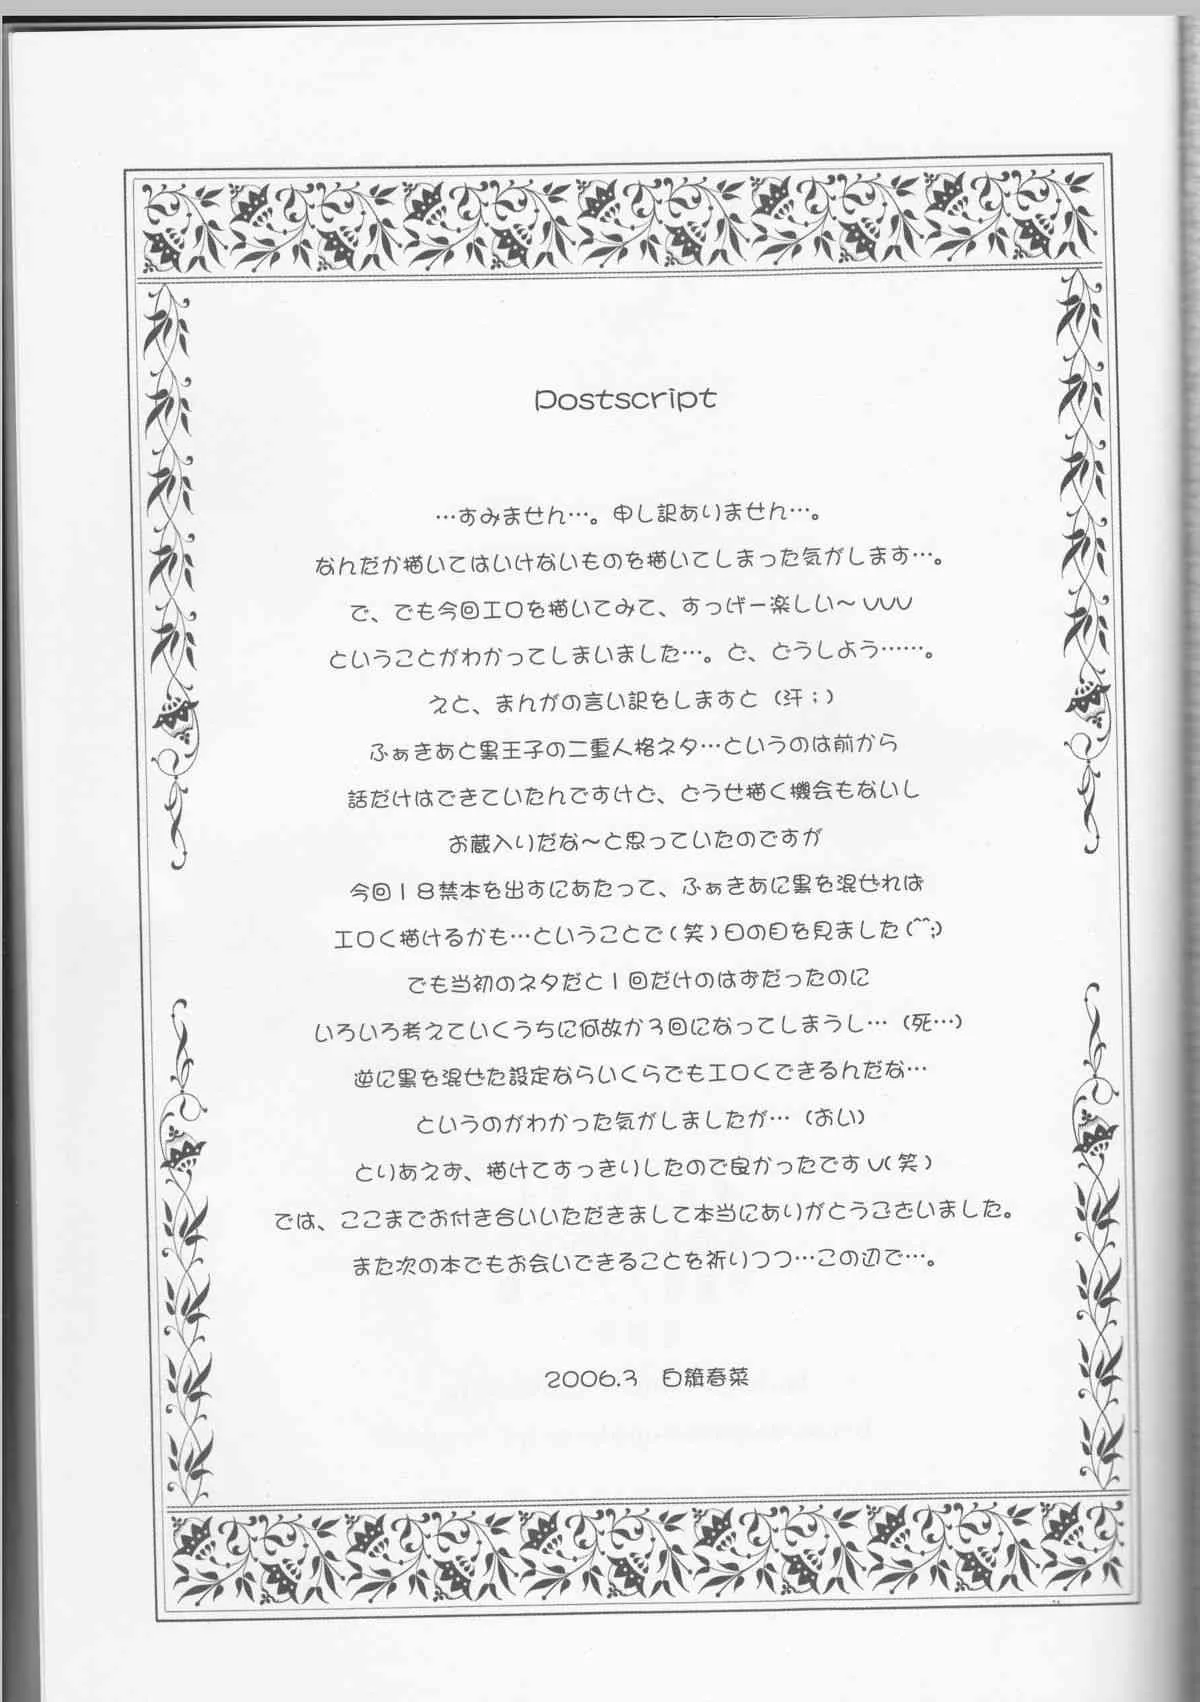 Postscript
…すみません…。申し訳ありません…。
なんだか描いてはいけないものを描いてしまった気がします…。
で、でも今回エロを描いてみて、すっげー楽しい～∪∪∪
ということがわかってしまいました…。ど、どうしよう……。
えと、まんがの言い訳をしますと（汗；）
ふぁきあと黒王子の二重人格ネタ…というのは前から
話だけはできていたんですけど、どうせ描く機会もないし
お蔵入りだな～と思っていたのですが
今回１８禁本を出すにあたって、ふぁきあに黒を混ぜれば
エロく描けるかも…ということで(笑)日の目を見ました(^^;)
でも当初のネタだと１回だけのはずだったのに
いろいろ考えていくうちに何故か３回になってしまうし…（死…）
逆に黒を混ぜた設定ならいくらでもエロくできるんだな…
というのがわかった気がしましたが…（おい）
とりあえず、描けてすっきりしたので良かったです∪(笑)
では、ここまでお付き合いいただきまして本当にありがとうございました。
また次の本でもお会いできることを祈りつつ…この辺で…。
2006.3　白籏春菜